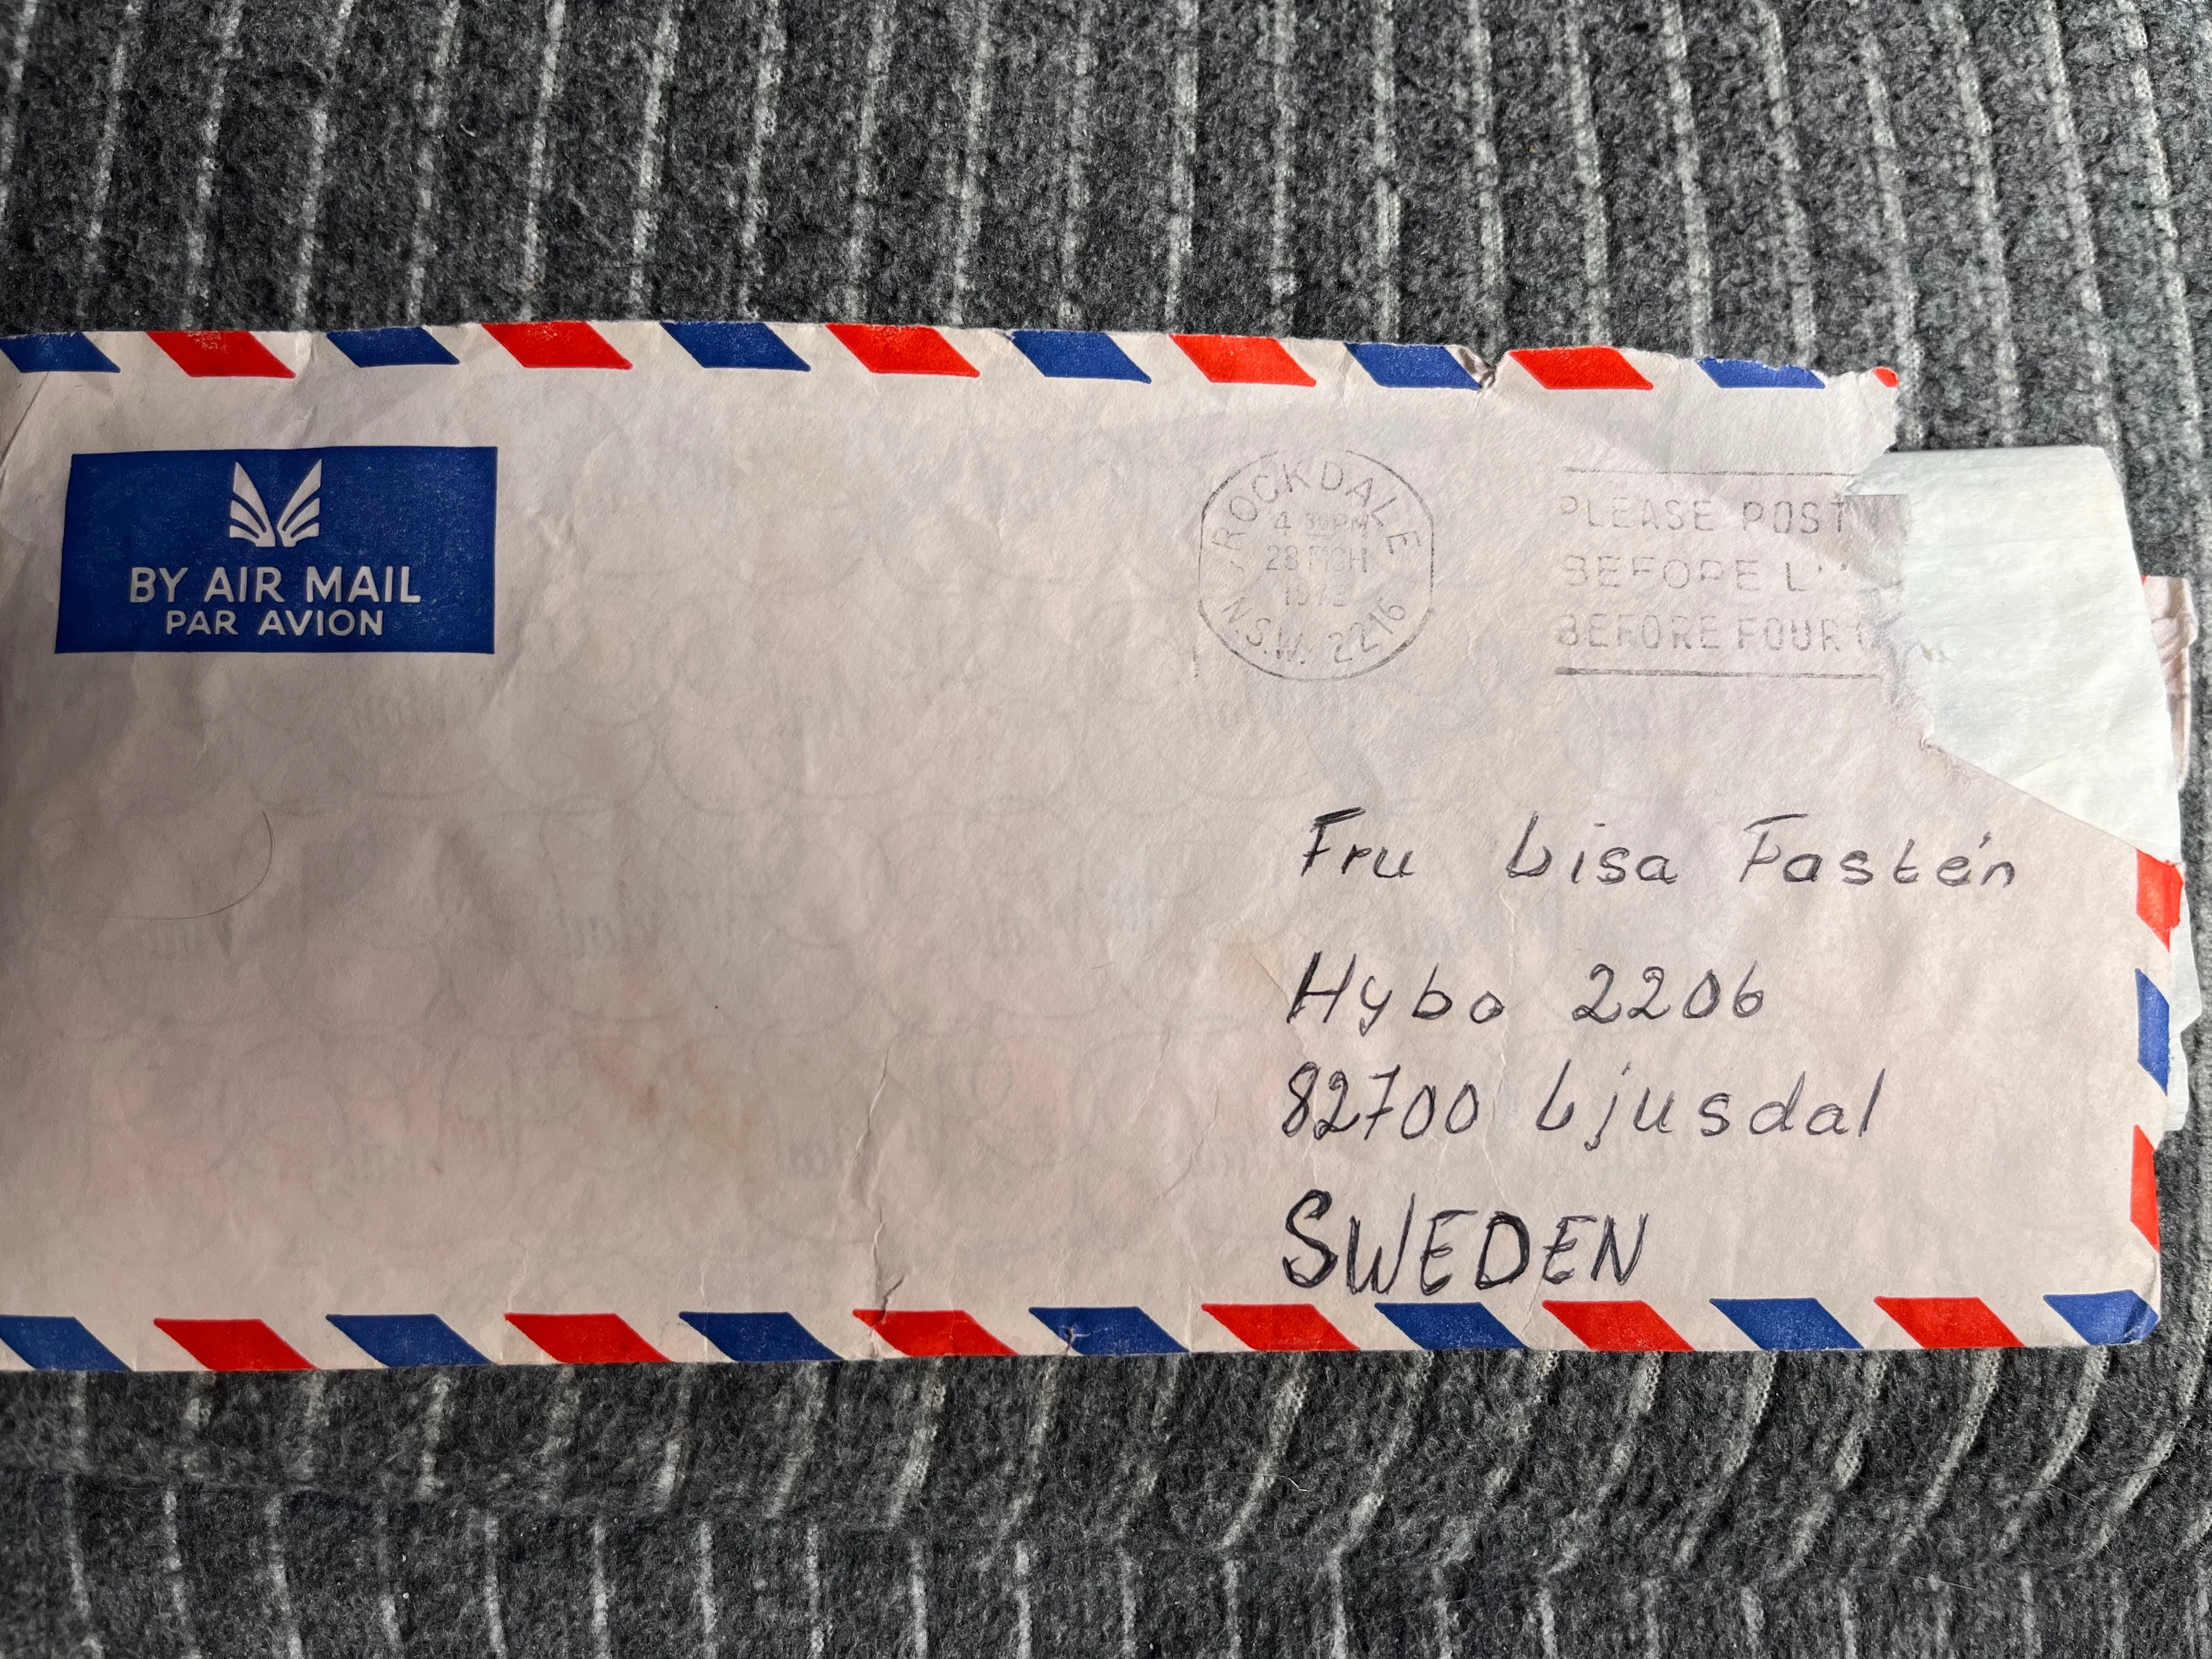 BY AIR MAIL
PAR AVION
ROCKDALE
4 30PM
28 MCH
N.S.W. 2216
PLEASE POST
BEFORE
BEFORE FOUR
Fru Lisa Fastén
Hybo 2206
82700 Ljusdal
SWEDEN